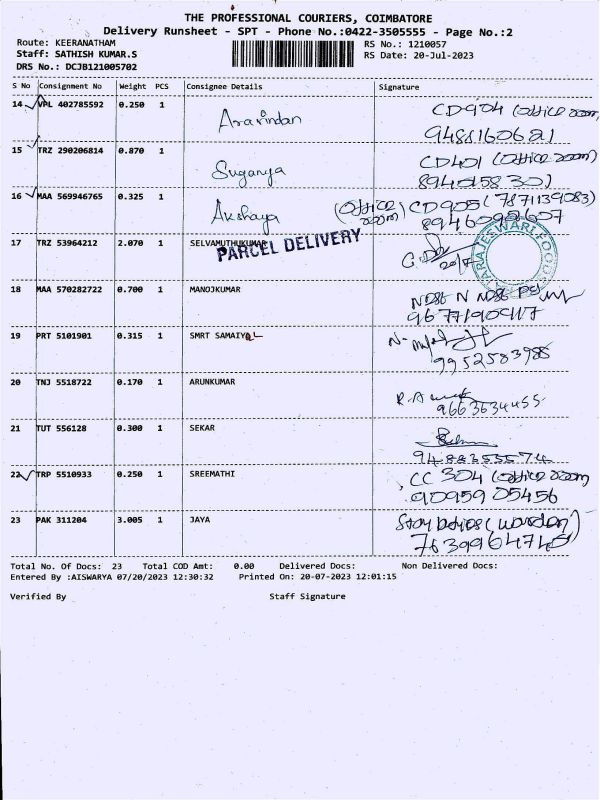 THE PROFESSIONAL COURIERS, COIMBATORE
Delivery Runsheet - SPT - Phone No.:0422-3505555 - Page No.:2
Route: KEERANATHAM RS No.: 1210057
Staff: SATHISH KUMAR.S RS Date: 20-Jul-2023
DRS No.: DCJB121005702
S No Consignment No Weight PCS Consignee Details Signature
14 VPL 402785592 0.250 1 Aravindan CD904 (office room)
9488160621
15 TRZ 290206814 0.870 1 Suganya CD401 (office room)
16 MAA 569946765 0.325 1 Akshaya (office room) CD905 (7871139083)
17 TRZ 53964212 2.070 1 SELVAMUTHUKUMAR
PARCEL DELIVERY
20/7
18 MAA 570282722 0.700 1 MANOJKUMAR
19 PRT 5101901 0.315 1 SMRT SAMAIYAL
9952583988
20 TNJ 5518722 0.170 1 ARUNKUMAR
9663634455
21 TUT 556128 0.300 1 SEKAR
22 TRP 5510933 0.250 1 SREEMATHI CC 304 (office room)
9095905456
23 PAK 311204 3.005 1 JAYA (warden)
Total No. Of Docs: 23 Total COD Amt: 0.00 Delivered Docs: Non Delivered Docs:
Entered By :AISWARYA 07/20/2023 12:30:32 Printed On: 20-07-2023 12:01:15
Verified By Staff Signature